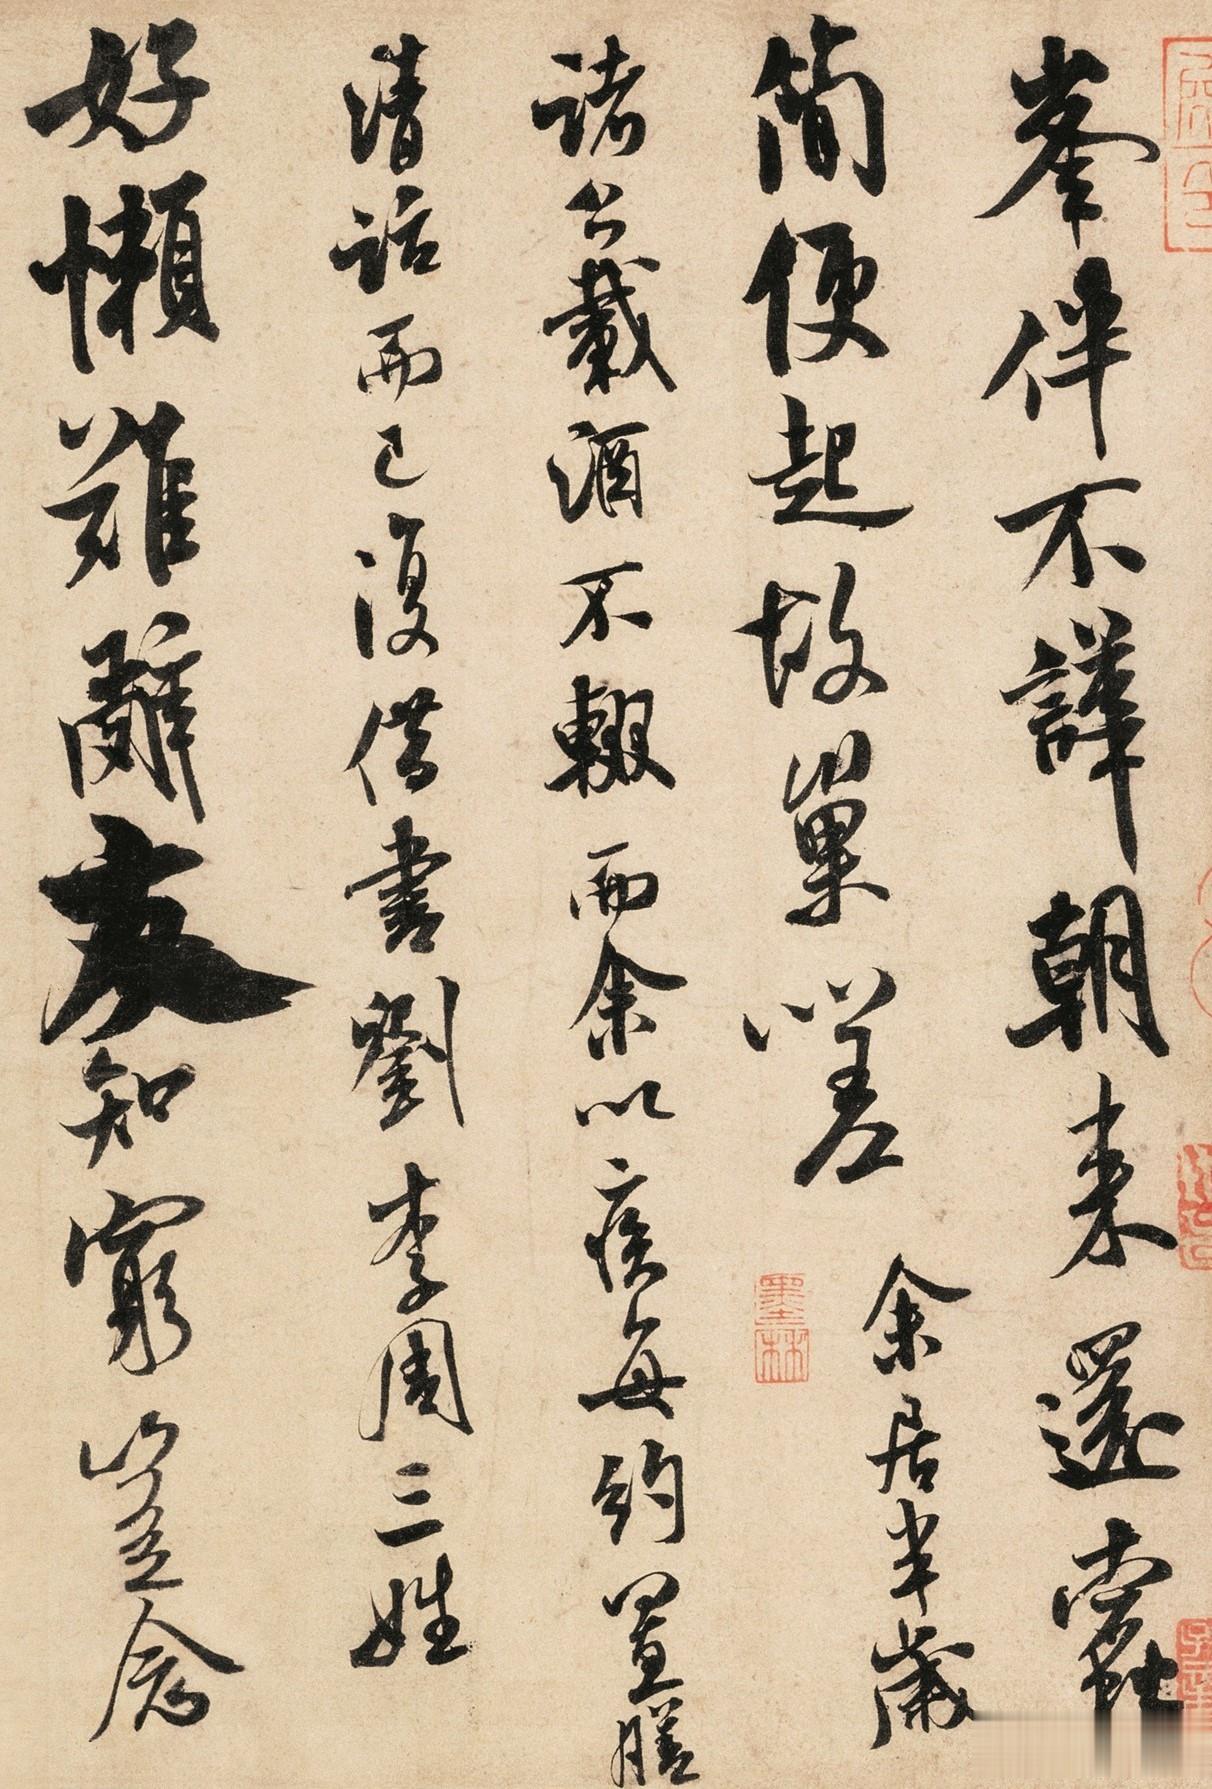 峯伴不譁朝来還蠹
簡便起故巢嗟 余居半歲
諸公載酒不輟而余以疾每約置膳
清話而已復借書劉李周三姓
好懶難辭友知窮豈念
墨林